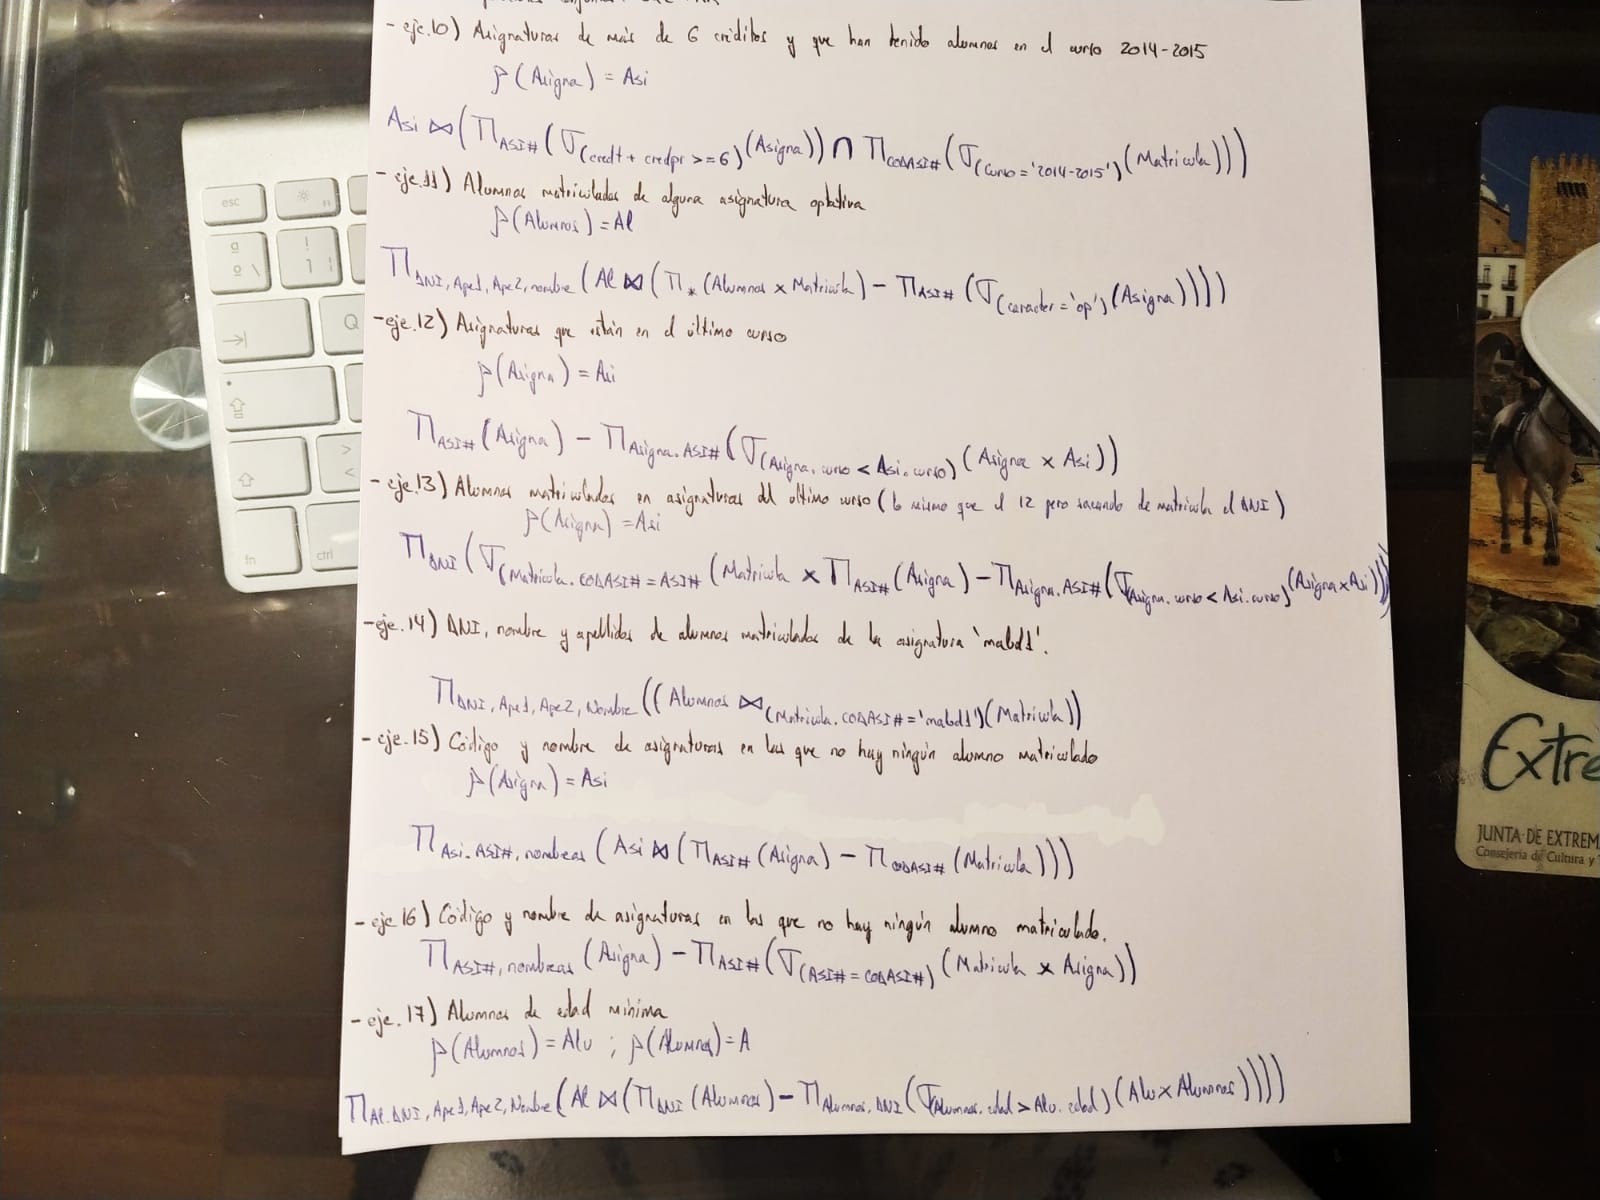 - eje.10) Asignaturas de más de 6 créditos y que han tenido alumnos en el curso 2014-2015
ρ(Asigna) = Asi
Asi ⋈ (Π ASI# (σ (credt + credpr >= 6) (Asigna)) ∩ Π CODASI# (σ (curso = '2014-2015') (Matricula)))
- eje.11) Alumnos matriculados de alguna asignatura optativa
ρ(Alumnos) = Al
Π DNI, Ape1, Ape2, nombre (Al ⋈ (Π * (Alumnos x Matricula) - Π ASI# (σ (caracter = 'op') (Asigna))))
- eje.12) Asignaturas que están en el último curso
ρ(Asigna) = Asi
Π ASI# (Asigna) - Π Asigna.ASI# (σ (Asigna.curso < Asi.curso) (Asigna x Asi))
- eje.13) Alumnos matriculados en asignaturas del último curso (lo mismo que el 12 pero sacando de matricula el DNI)
ρ(Asigna) = Asi
Π DNI (σ (Matricula.CODASI# = ASI# (Matricula x Π ASI# (Asigna) - Π Asigna.ASI# (σ (Asigna.curso < Asi.curso) (Asigna x Asi)))
- eje.14) DNI, nombre y apellidos de alumnos matriculados de la asignatura 'mabd1'.
Π DNI, Ape1, Ape2, Nombre ((Alumnos ⋈ (Matricula.CODASI# = 'mabd1') (Matricula))
- eje.15) Código y nombre de asignaturas en las que no hay ningún alumno matriculado
ρ(Asigna) = Asi
Π Asi.ASI#, nombreas (Asi ⋈ (Π ASI# (Asigna) - Π CODASI# (Matricula)))
- eje.16) Código y nombre de asignaturas en las que no hay ningún alumno matriculado.
Π ASI#, nombreas (Asigna) - Π ASI# (σ (ASI# = CODASI#) (Matricula x Asigna))
- eje.17) Alumnos de edad mínima
ρ(Alumnos) = Alu ; ρ(Alumnos) = A
Π Al.DNI, Ape1, Ape2, Nombre (Al ⋈ (Π DNI (Alumnos) - Π Alumnos.DNI (σ (Alumnos.edad > Alu.edad) (Alu x Alumnos))))
esc
F1
ª
º \
!
1 |
Q
>
<
fn
ctrl
Extre
JUNTA DE EXTREM
Consejería de Cultura y